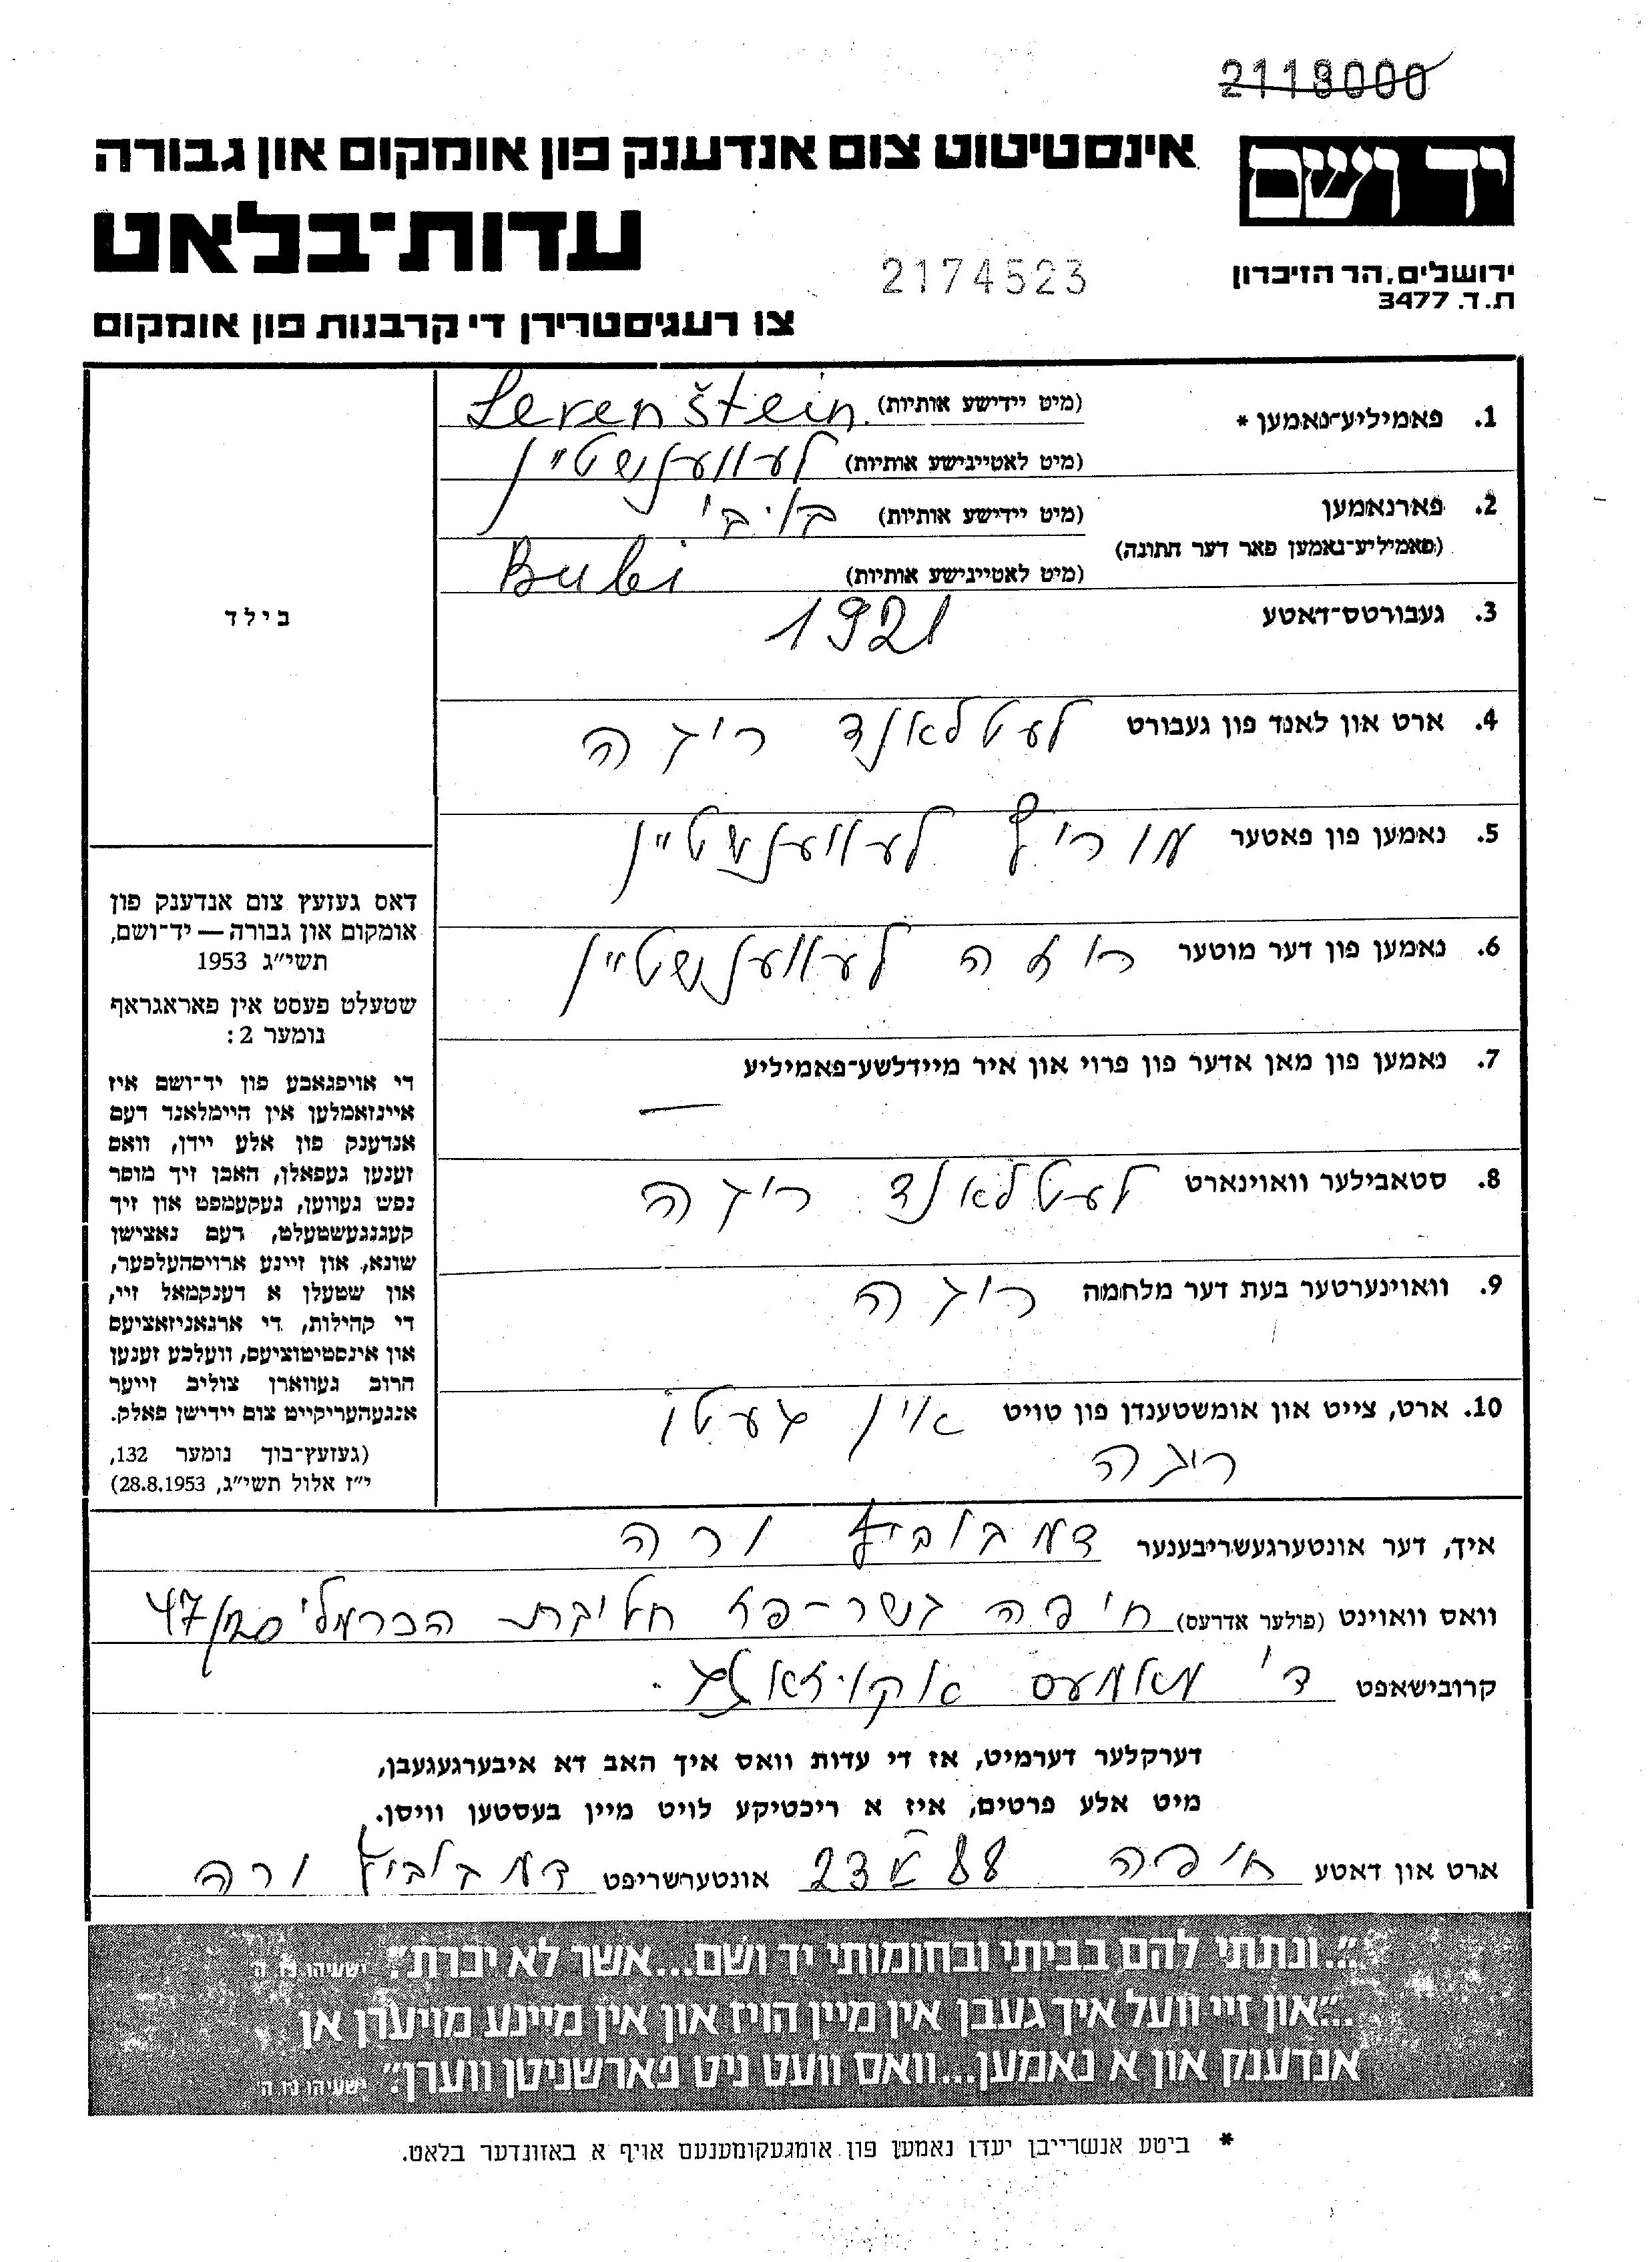 2118000
יד ושם
אינסטיטוט צום אנדענק פון אומקום און גבורה
עדות־בלאט
2174523
ירושלים, הר הזיכרון
ת.ד. 3477
צו רעגיסטרירן די קרבנות פון אומקום
1. פאמיליע־נאמען * (מיט יידישע אותיות) Levenštein
(מיט לאטיינישע אותיות) לעווענשטיין
2. פארנאמען (מיט יידישע אותיות) בובי
(פאמיליע־נאמען פאר דער חתונה) (מיט לאטיינישע אותיות) Bubi
3. געבורטס־דאטע 1921
4. ארט און לאנד פון געבורט לעטלאנד ריגה
5. נאמען פון פאטער מוריץ לעווענשטיין
6. נאמען פון דער מוטער רוזה לעווענשטיין
7. נאמען פון מאן אדער פון פרוי און איר מיידלשע־פאמיליע
—
8. סטאבילער וואוינארט לעטלאנד ריגה
9. וואוינערטער בעת דער מלחמה ריגה
10. ארט, צייט און אומשטענדן פון טויט אין געטו
ריגה
בילד
דאס געזעץ צום אנדענק פון
אומקום און גבורה — יד־ושם,
תשי״ג 1953
שטעלט פעסט אין פאראגראף
נומער 2:
די אויפגאבע פון יד־ושם איז
איינזאמלען אין היימלאנד דעם
אנדענק פון אלע יידן, וואס
זענען געפאלן, האבן זיך מוסר
נפש געווען, געקעמפט און זיך
קעגנגעשטעלט, דעם נאצישן
שונא, און זיינע ארויסהעלפער,
און שטעלן א דענקמאל זיי,
די קהילות, די ארגאניזאציעס
און אינסטיטוציעס, וועלכע זענען
הרוב געווארן צוליב זייער
אנגעהעריקייט צום יידישן פאלק.
(געזעץ־בוך נומער 132,
י״ז אלול תשי״ג, 28.8.1953)
איך, דער אונטערגעשריבענער דמבוביץ ורה
וואס וואוינט (פולער אדרעס) חיפה נשר־פז חטיבת הכרמלי 47
קרובישאפט די מאמעס
דערקלער דערמיט, אז די עדות וואס איך האב דא איבערגעגעבן,
מיט אלע פרטים, איז א ריכטיקע לויט מיין בעסטען וויסן.
ארט און דאטע חיפה 23 V 88 אונטערשריפט דמבוביץ ורה
״...ונתתי להם בביתי ובחומותי יד ושם...אשר לא יכרת״ ישעיהו נו ה
״...און זיי וועל איך געבן אין מיין הויז און אין מיינע מויערן אן
אנדענק און א נאמען...וואס וועט ניט פארשניטן ווערן״ ישעיהו נו ה
* ביטע אנשרייבן יעדן נאמען פון אומגעקומענעם אויף א באזונדער בלאט.